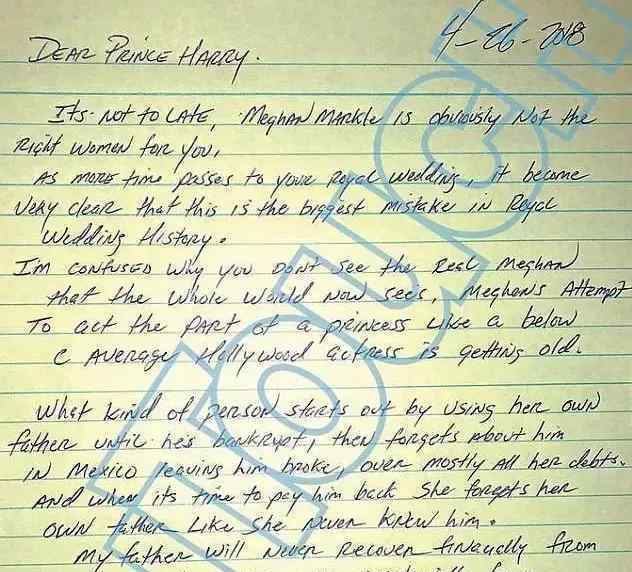 4-26-2018
DEAR PRINCE HARRY.
Its not to LATE, Meghan MARKle is obviously Not the
Right women for you,
As MORE time passes to your Royal wedding, it became
very clear that this is the biggest mistake in Royal
Wedding History.
I'm confused why you Don't see the Real Meghan
that the whole world Now sees, Meghans Attempt
To act the PART of a princess Like a below
C Average Hollywood actress is getting old.
What kind of person starts out by using her own
father until he's bankrupt, then forgets about him
IN Mexico leaving him broke, over mostly all her debts.
And when its time to pay him back She forgets her
OWN father Like She Never Knew him.
My father will Never Recover finacually from